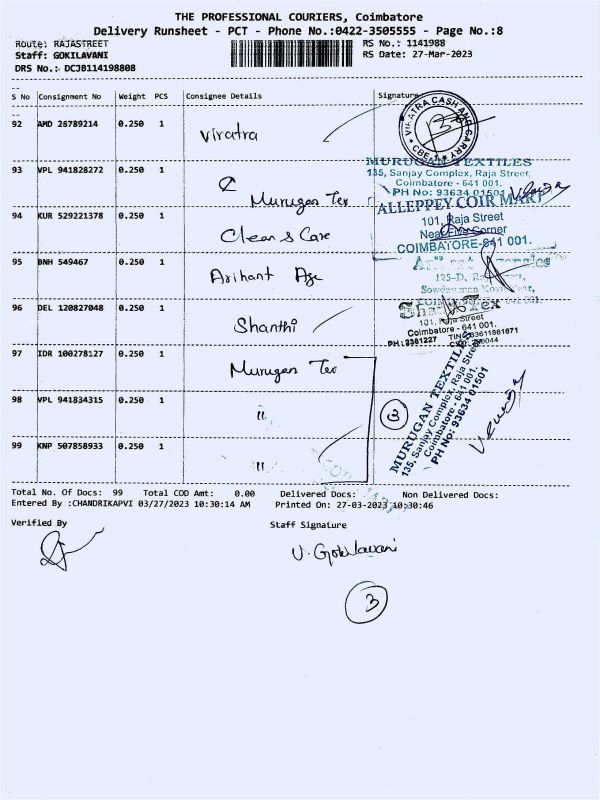 THE PROFESSIONAL COURIERS, Coimbatore
Delivery Runsheet - PCT - Phone No.:0422-3505555 - Page No.:8
Route: RAJASTREET RS No.: 1141988
Staff: GOKILAVANI RS Date: 27-Mar-2023
DRS No.: DCJB114198808
S No Consignment No Weight PCS Consignee Details Signature
92 AMD 26789214 0.250 1 Viratra
VIRATRA CASH AND CARRY
CBE-1
93 VPL 941828272 0.250 1 Murugan Tex
MURUGAN TEXTILES
135, Sanjay Complex, Raja Street,
Coimbatore - 641 001.
PH No: 93634 01501
94 KUR 529221378 0.250 1 Clean & Care
ALLEPPEY COIR MART
101, Raja Street
Near Five Corner
COIMBATORE-641 001.
95 BNH 549467 0.250 1 Arihant Age
125-D, Raja Street,
96 DEL 120827048 0.250 1 Shanthi
Tex
101, Raja Street
Coimbatore - 641 001.
PH: 2381227
97 IDR 100278127 0.250 1 Murugan Tex
98 VPL 941834315 0.250 1 "
3
99 KNP 507858933 0.250 1 "
MURUGAN TEXTILES
135, Sanjay Complex, Raja Street
Coimbatore - 641 001.
PH No: 93634 01501
Total No. Of Docs: 99 Total COD Amt: 0.00 Delivered Docs: Non Delivered Docs:
Entered By :CHANDRIKAPVI 03/27/2023 10:30:14 AM Printed On: 27-03-2023 10:30:46
Verified By Staff Signature
V. Gokilavani
3